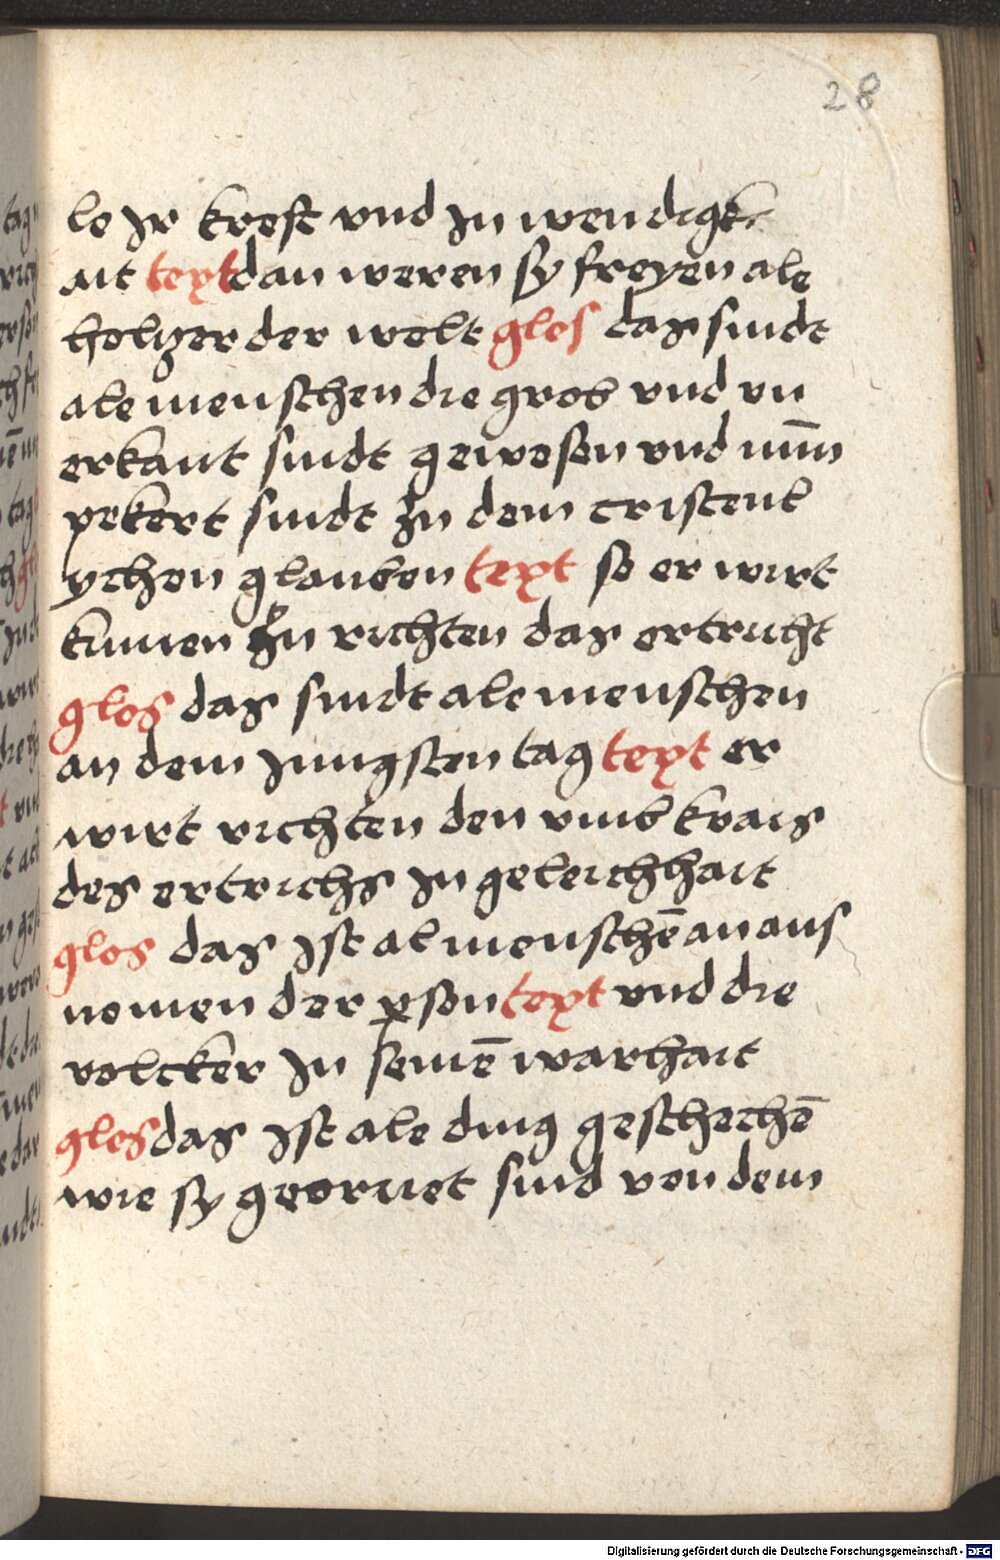 28
le ir kreft vnd in wendigk
ait text dan weren sy freyen ale
holtzer der welt glos das sindt
ale menschen die grob vnd vn
erkant sindt gewesen vnd nun̄
pekert sindt zu dem cristenl
ychen glauben text so er wirt
kumen zu richten das ertricht
glos das sindt ale menschen
an dem iungsten tag text er
wirt richten den vmb krais
des ertrichs in geleichhait
glos das ist al menschē an aus
nemen der ꝑson text vnd die
volcker in seinē warhait
glos das ist ale ding geschechē
wie sy geornet sind von dem
Digitalisierung gefördert durch die Deutsche Forschungsgemeinschaft - DFG